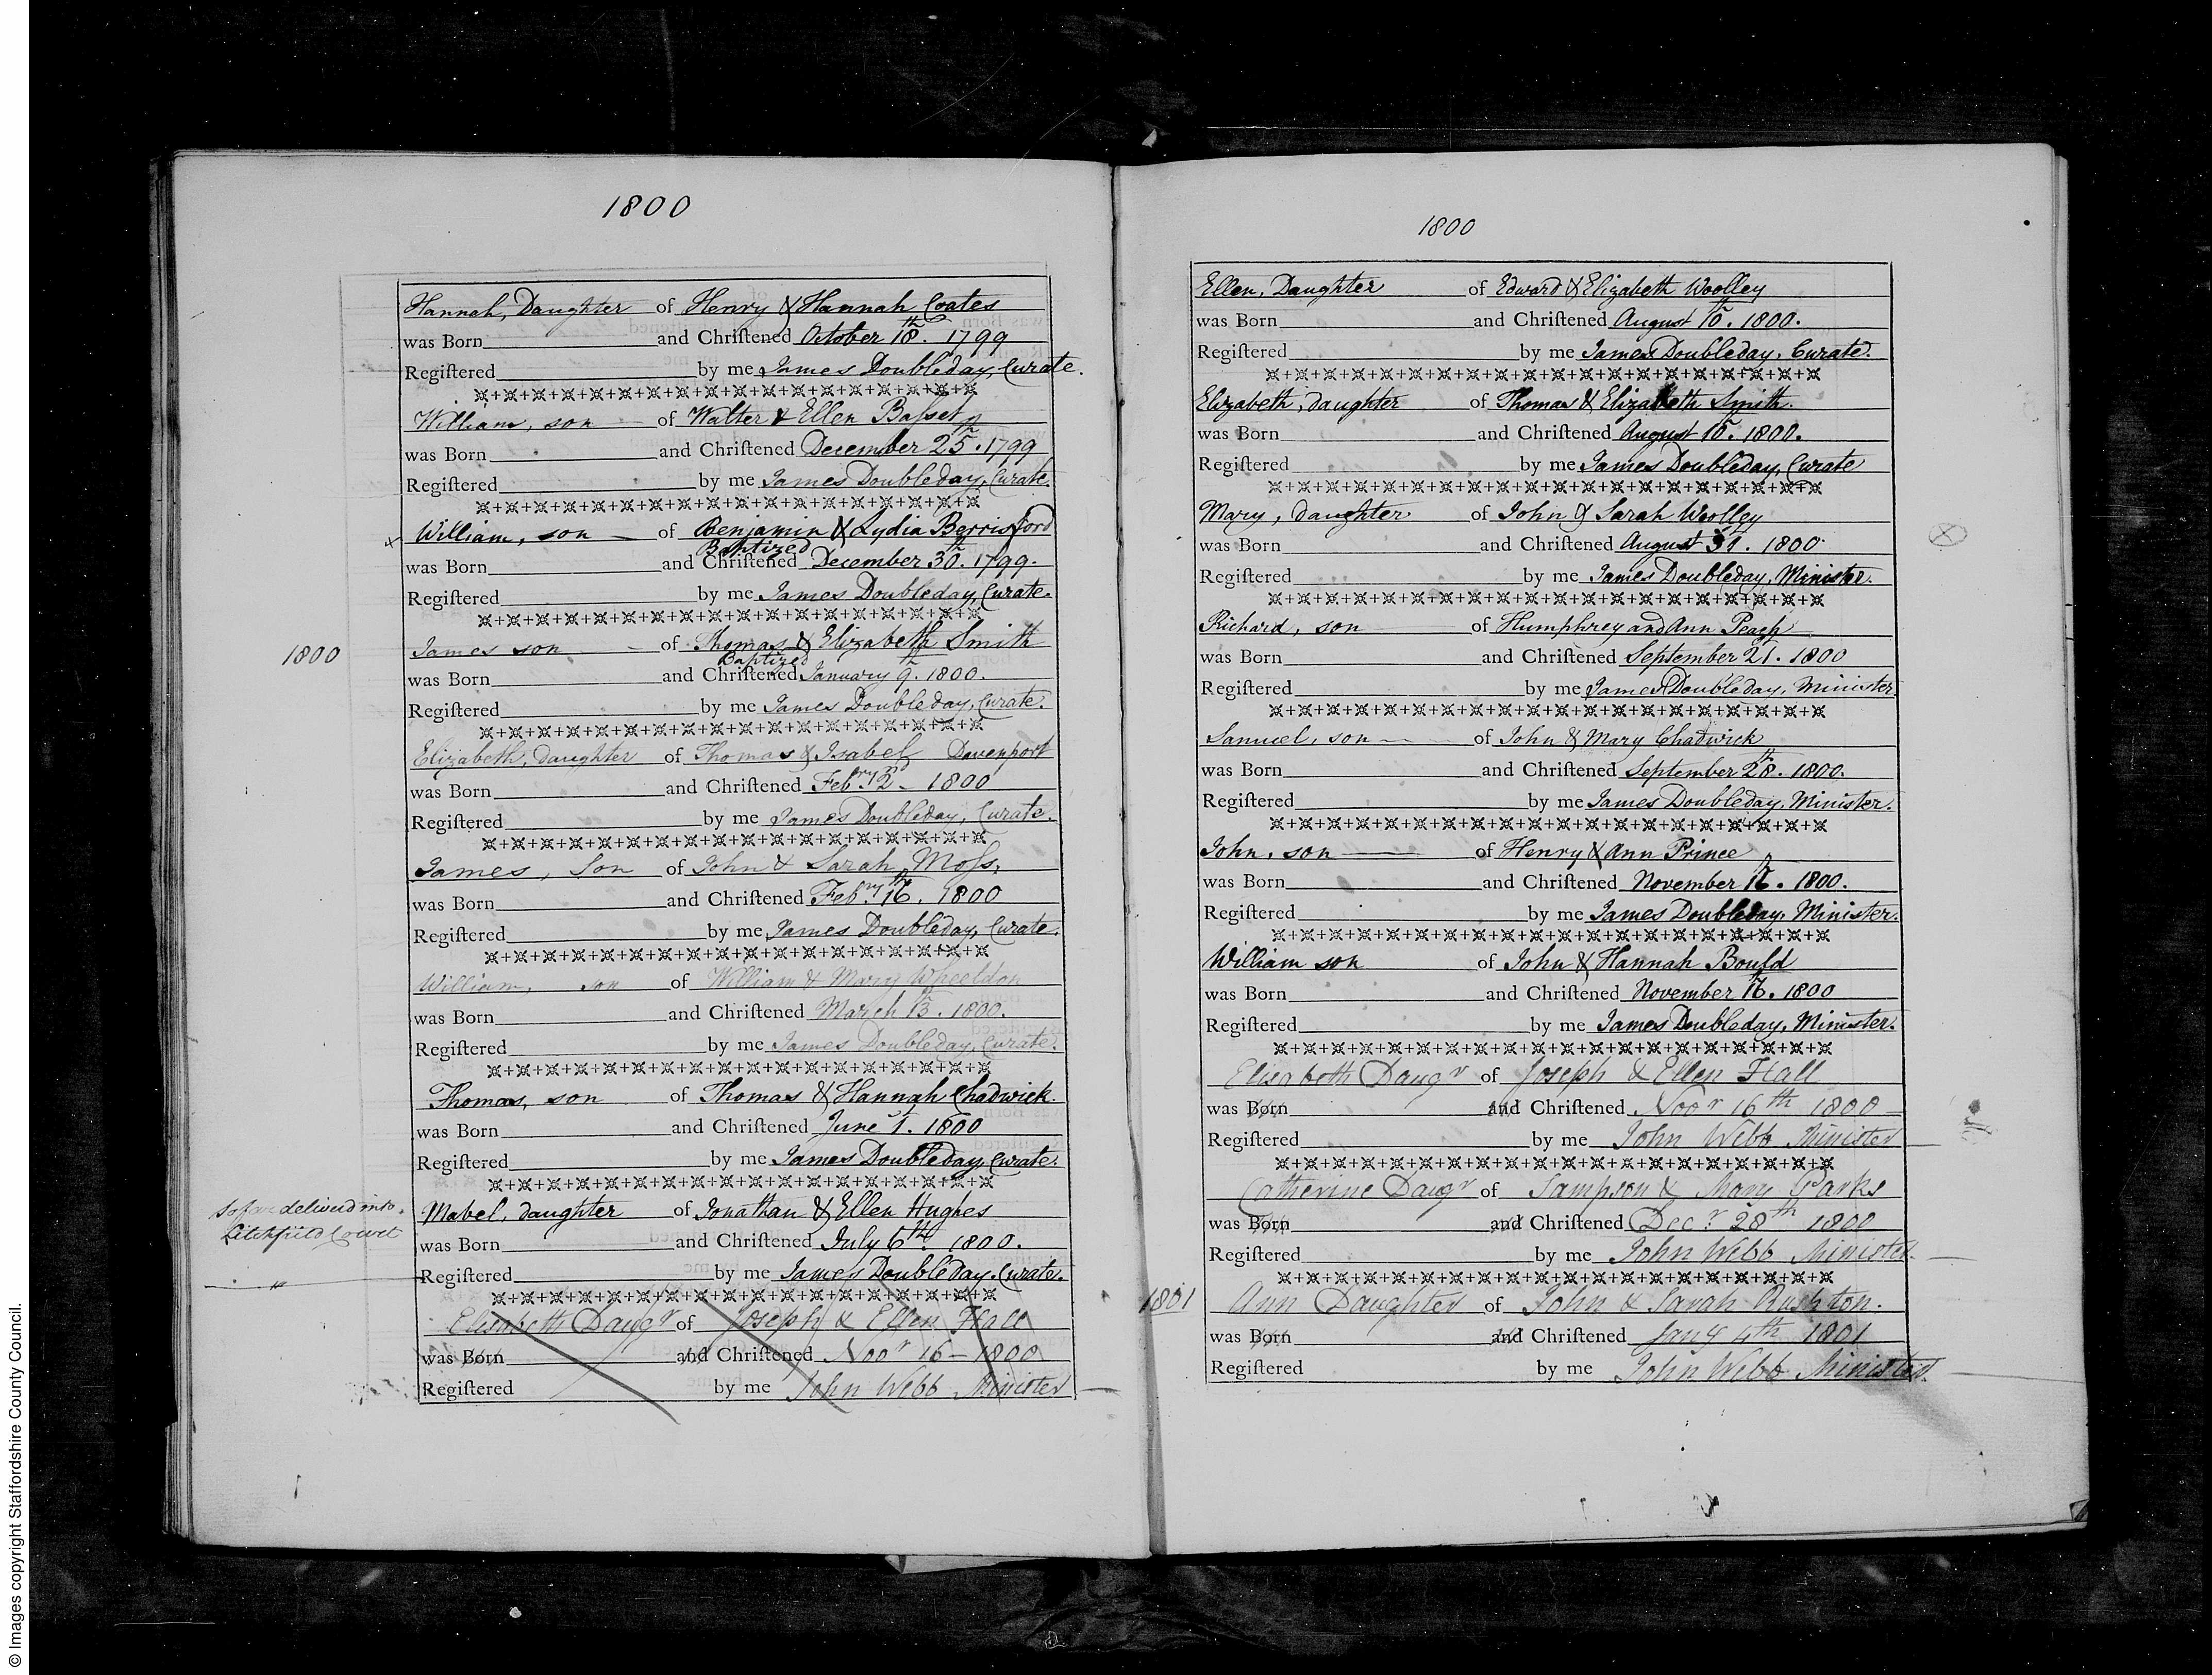 1800
Hannah, Daughter of Henry & Hannah Coates
was Born and Chriſtened October 18th. 1799
Regiſtered by me James Doubleday, Curate.
William, son of Walter & Ellen Baſset
was Born and Chriſtened December 25th. 1799
Regiſtered by me James Doubleday, Curate.
x William, son of Benjamin & Lydia Berrisford
Baptized
was Born and Chriſtened December 30th. 1799.
Regiſtered by me James Doubleday, Curate.
1800 James son of Thomas & Elizabeth Smith
Baptized
was Born and Chriſtened January 9th. 1800.
Regiſtered by me James Doubleday, Curate.
Elizabeth, daughter of Thomas & Isabel Davenport
was Born and Chriſtened Febry. 2d 1800
Regiſtered by me James Doubleday, Curate.
James, Son of John & Sarah Moſs,
was Born and Chriſtened Febry. 16th. 1800
Regiſtered by me James Doubleday, Curate.
William, son of William & Mary Wheeldon
was Born and Chriſtened March 13. 1800.
Regiſtered by me James Doubleday, Curate.
Thomas, son of Thomas & Hannah Chadwick.
was Born and Chriſtened June 1. 1800
Regiſtered by me James Doubleday, Curate.
So far deliverd into
Litchfield Court
Mabel, daughter of Jonathan & Ellen Hughes
was Born and Chriſtened July 6th. 1800.
Regiſtered by me James Doubleday, Curate.
Elisabeth Daugr of Joseph & Ellen Hall
was Born and Chriſtened Novr 16 – 1800
Regiſtered by me John Webb Minister
1800
Ellen, Daughter of Edward & Elizabeth Woolley
was Born and Chriſtened August 10th. 1800.
Regiſtered by me James Doubleday, Curate.
Elizabeth, daughter of Thomas & Elizabeth Smith.
was Born and Chriſtened August 10. 1800.
Regiſtered by me James Doubleday, Curate
Mary, daughter of John & Sarah Woolley
was Born and Chriſtened August 31. 1800
Regiſtered by me James Doubleday, Minister.
Richard, son of Humphrey and Ann Peach
was Born and Chriſtened September 21. 1800
Regiſtered by me James Doubleday, Minister
Samuel, son of John & Mary Chadwick
was Born and Chriſtened September 28th. 1800.
Regiſtered by me James Doubleday, Minister.
John, son of Henry & Ann Prince
was Born and Chriſtened November 16th. 1800.
Regiſtered by me James Doubleday, Minister.
William son of John & Hannah Bould
was Born and Chriſtened November 16th. 1800
Regiſtered by me James Doubleday, Minister.
Elisabeth Daugr of Joseph & Ellen Hall
was Born and Chriſtened Novr 16th 1800
Regiſtered by me John Webb Minister
Catherine Daugr of Sampson & Mary Parks
was Born and Chriſtened Decr 28th 1800
Regiſtered by me John Webb Minister
1801 Ann Daughter of John & Sarah Rushton.
was Born and Chriſtened Jany 4th 1801
Regiſtered by me John Webb Minister.
© Images copyright Staffordshire County Council.